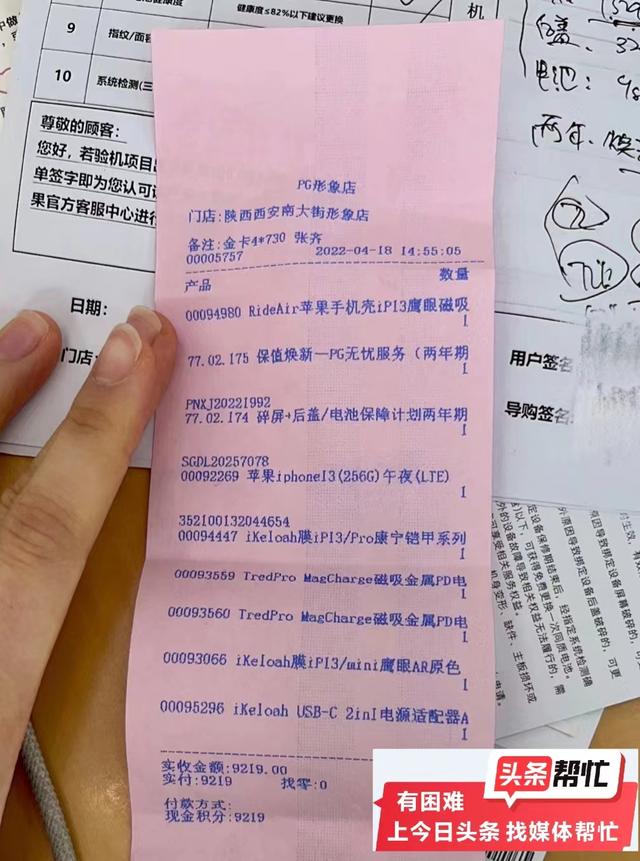 健康度≤82%以下建议更换
9
指纹/面容
10
系统检测(三
机
后盖:
电池:
两年.
尊敬的顾客:
您好，若验机项目
单签字即为您认可
果官方客服中心进行
日期:
门店:
PG形象店
门店:陕西西安南大街形象店
备注:金卡4*730 张齐
00005757 2022-04-18 14:55:05
产品 数量
00094980 RideAir苹果手机壳iP13鹰眼磁吸
1
77.02.175 保值焕新—PG无忧服务(两年期
1
PNXJ20221992
77.02.174 碎屏+后盖/电池保障计划两年期
1
SGDL20257078
00092269 苹果iphone13(256G)午夜(LTE)
1
352100132044654
00094447 iKeloah膜iP13/Pro康宁铠甲系列
1
00093559 TredPro MagCharge磁吸金属PD电
1
00093560 TredPro MagCharge磁吸金属PD电
1
00093066 iKeloah膜iP13/mini鹰眼AR原色
1
00095296 iKeloah USB-C 2in1电源适配器A
1
实收金额:9219.00
实付:9219 找零:0
付款方式:
现金积分:9219
用户签名
导购签名:
头条帮忙
有困难
上今日头条 找媒体帮忙